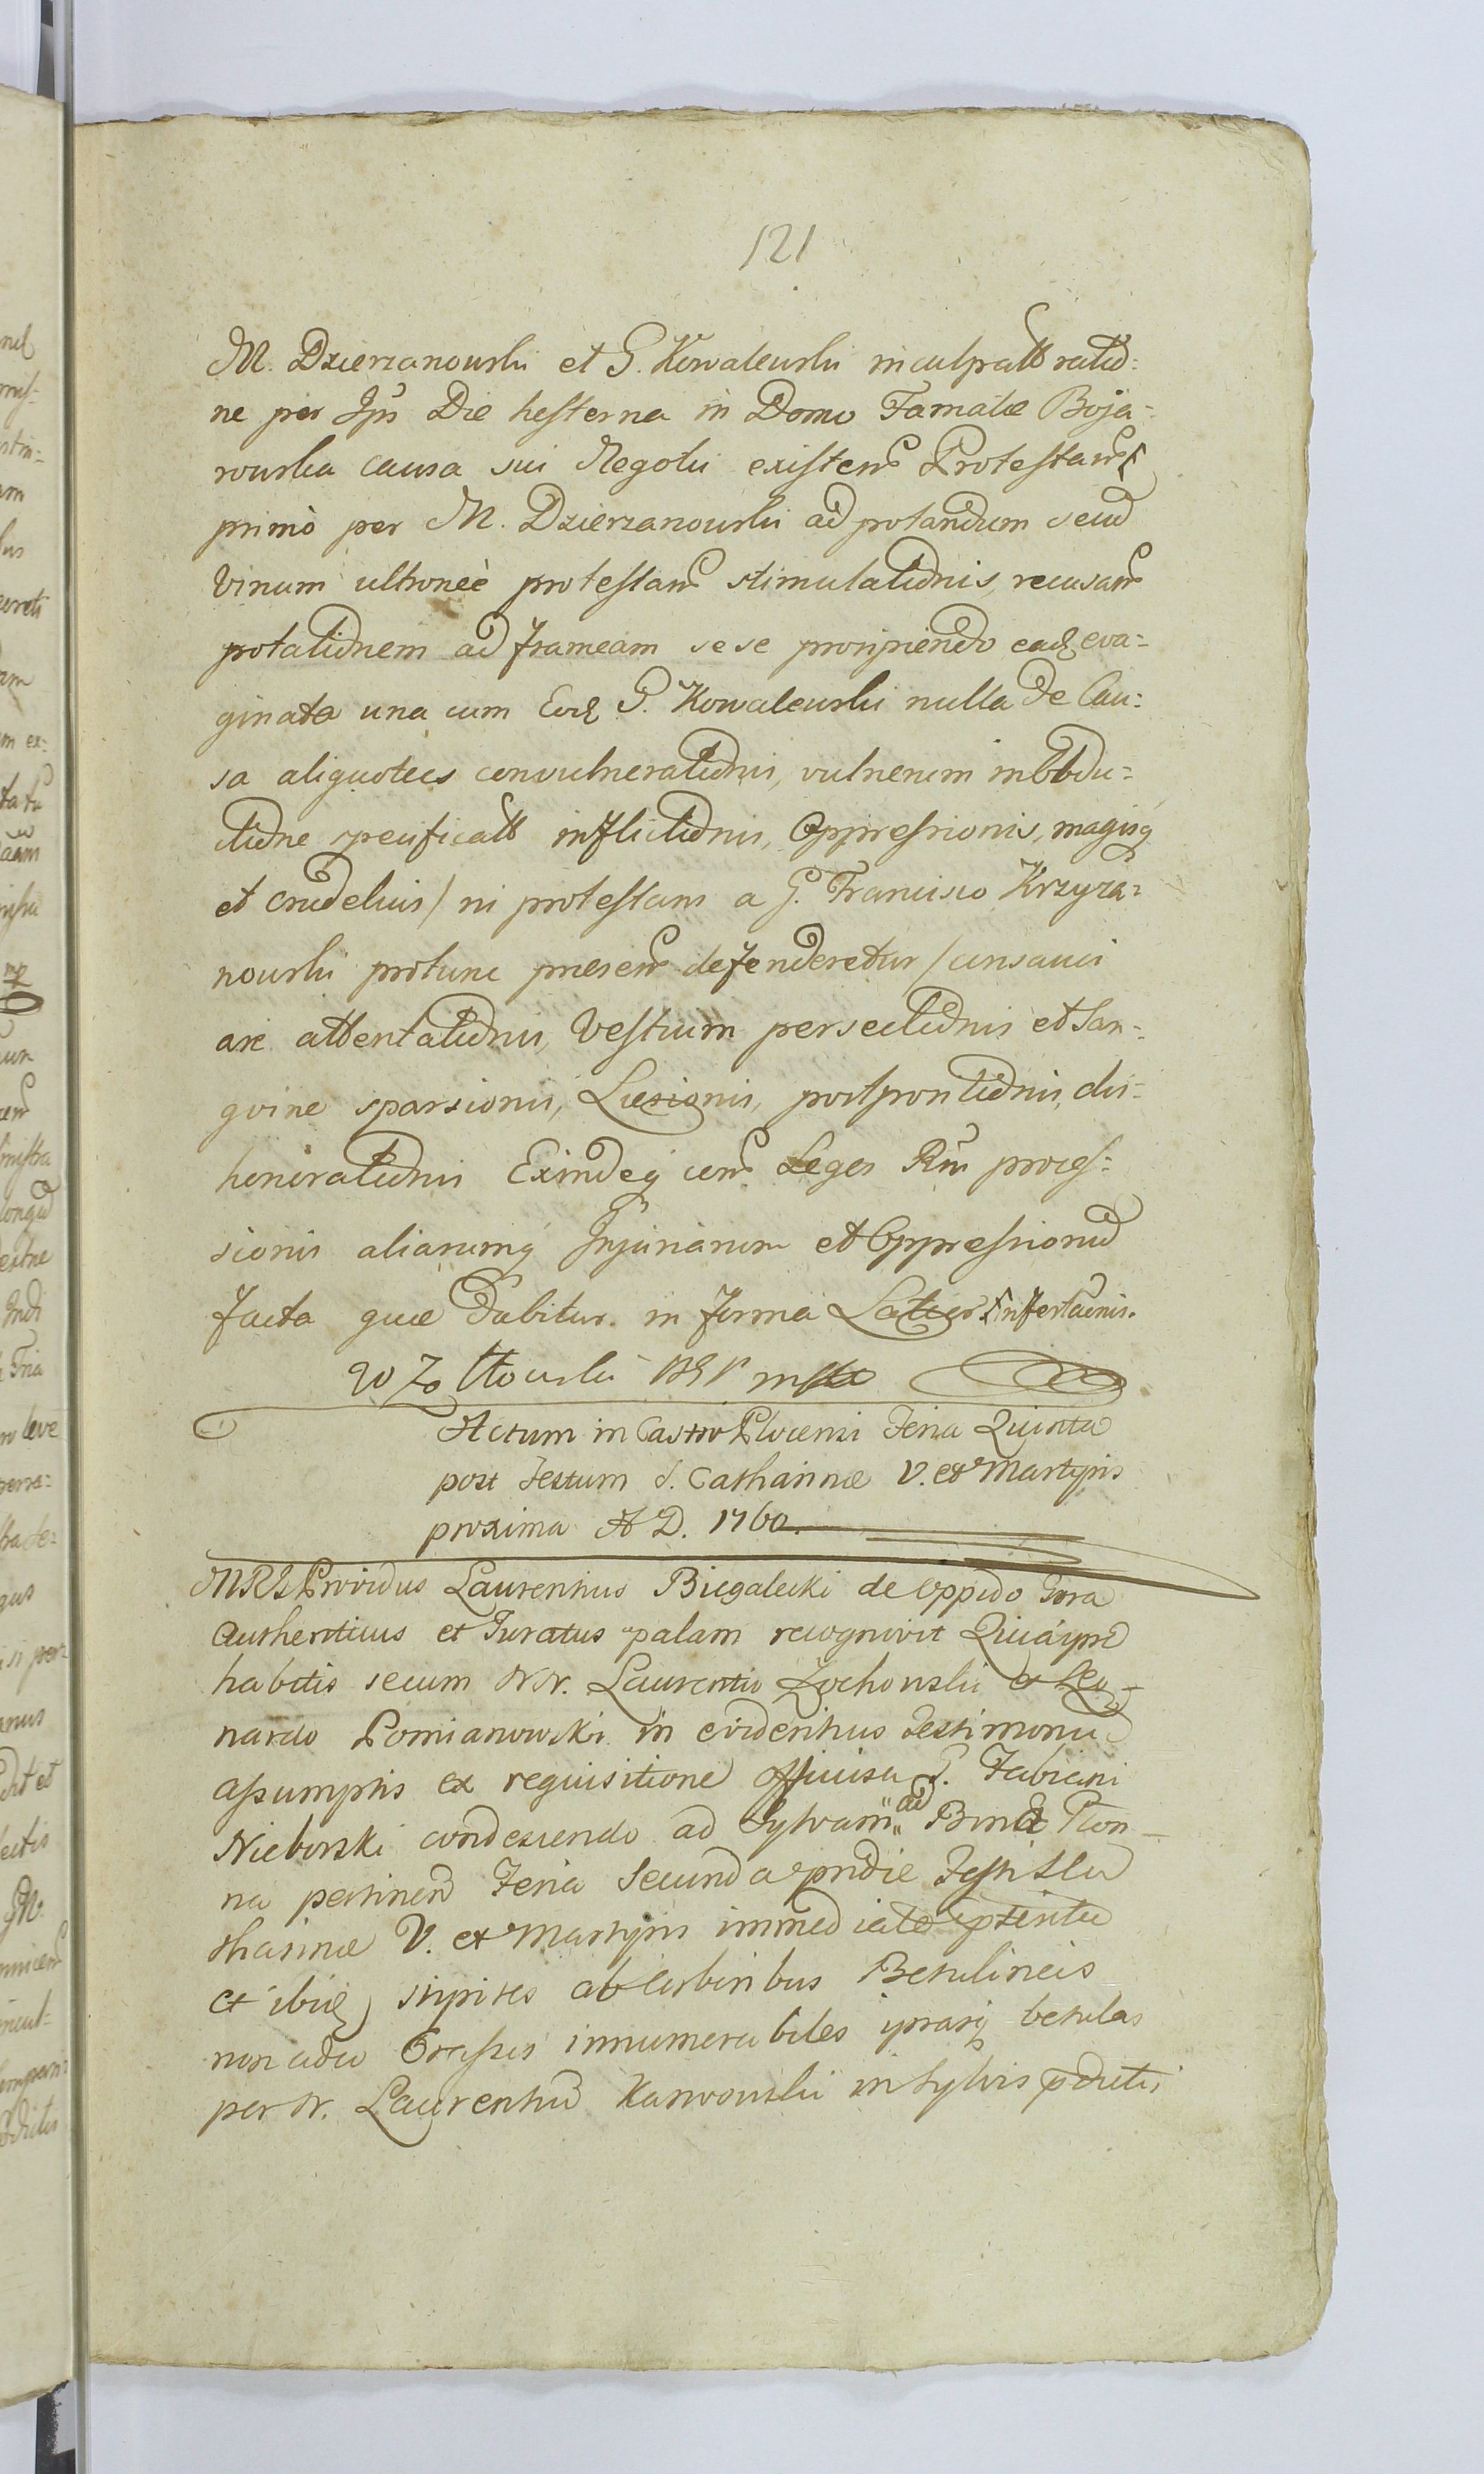 121
M. Dzierzanowski et G. Kowalewski inculpatt ratio:
ne per Ips Die hesterna in Domo Famatæ Boja-
rowska causa sui Negotii existen Protestan
primo per M. Dzierzanowski ad potandum
Vinum ultroneè protestan stimulationis, recusan
potationem ad frameam sese proripiendo ead eva-
ginata una cum Eod G. Kowalewski nulla de Cau:
sa aliquoties convulnerationis, vulnerum in obdu-
ctione specificatt inflictionis, Oppressionis, magisq
et crudelius / ni protestans a G. Francisco Krzyza-
nowski protunc presen defenderetur / consauci
are attentationis, Vestium persectionis et San-
guine sparsionis, Læsionis, postpositionis, dis-
honorationis Exindeq con Leges Rni proces-
sionis aliarumq Injuriarum et Oppressionu
facta quæ Dabitur in forma Latior
Actum in Castro Plocensi Feria Quinta
post Festum S. Catharinæ V. et Martyris
proxima A D. 1760.
Providus Laurentius Biegalecki de Oppido Gora
Authenticus et Juratus palam recognovit Quia ipse
habitis secum NN. Laurentio Zochowski et Leo-
nardo Pomianowski in evidentius Testimoniu
assumptis ex requisitione officiosa G. Fabiani
Nieborski condescendo ad Sylvam ad Bona Plon-
na pertinen Feria Secunda pridie Festi S Ca
tharinæ V. et Martyris immediate præterita
et ibid stipites ab Arboribus Betulineis
non adeo Crassis innumerabiles ipsasq betulas
per N. Laurentiu Karwowski in Sylvis pdictis